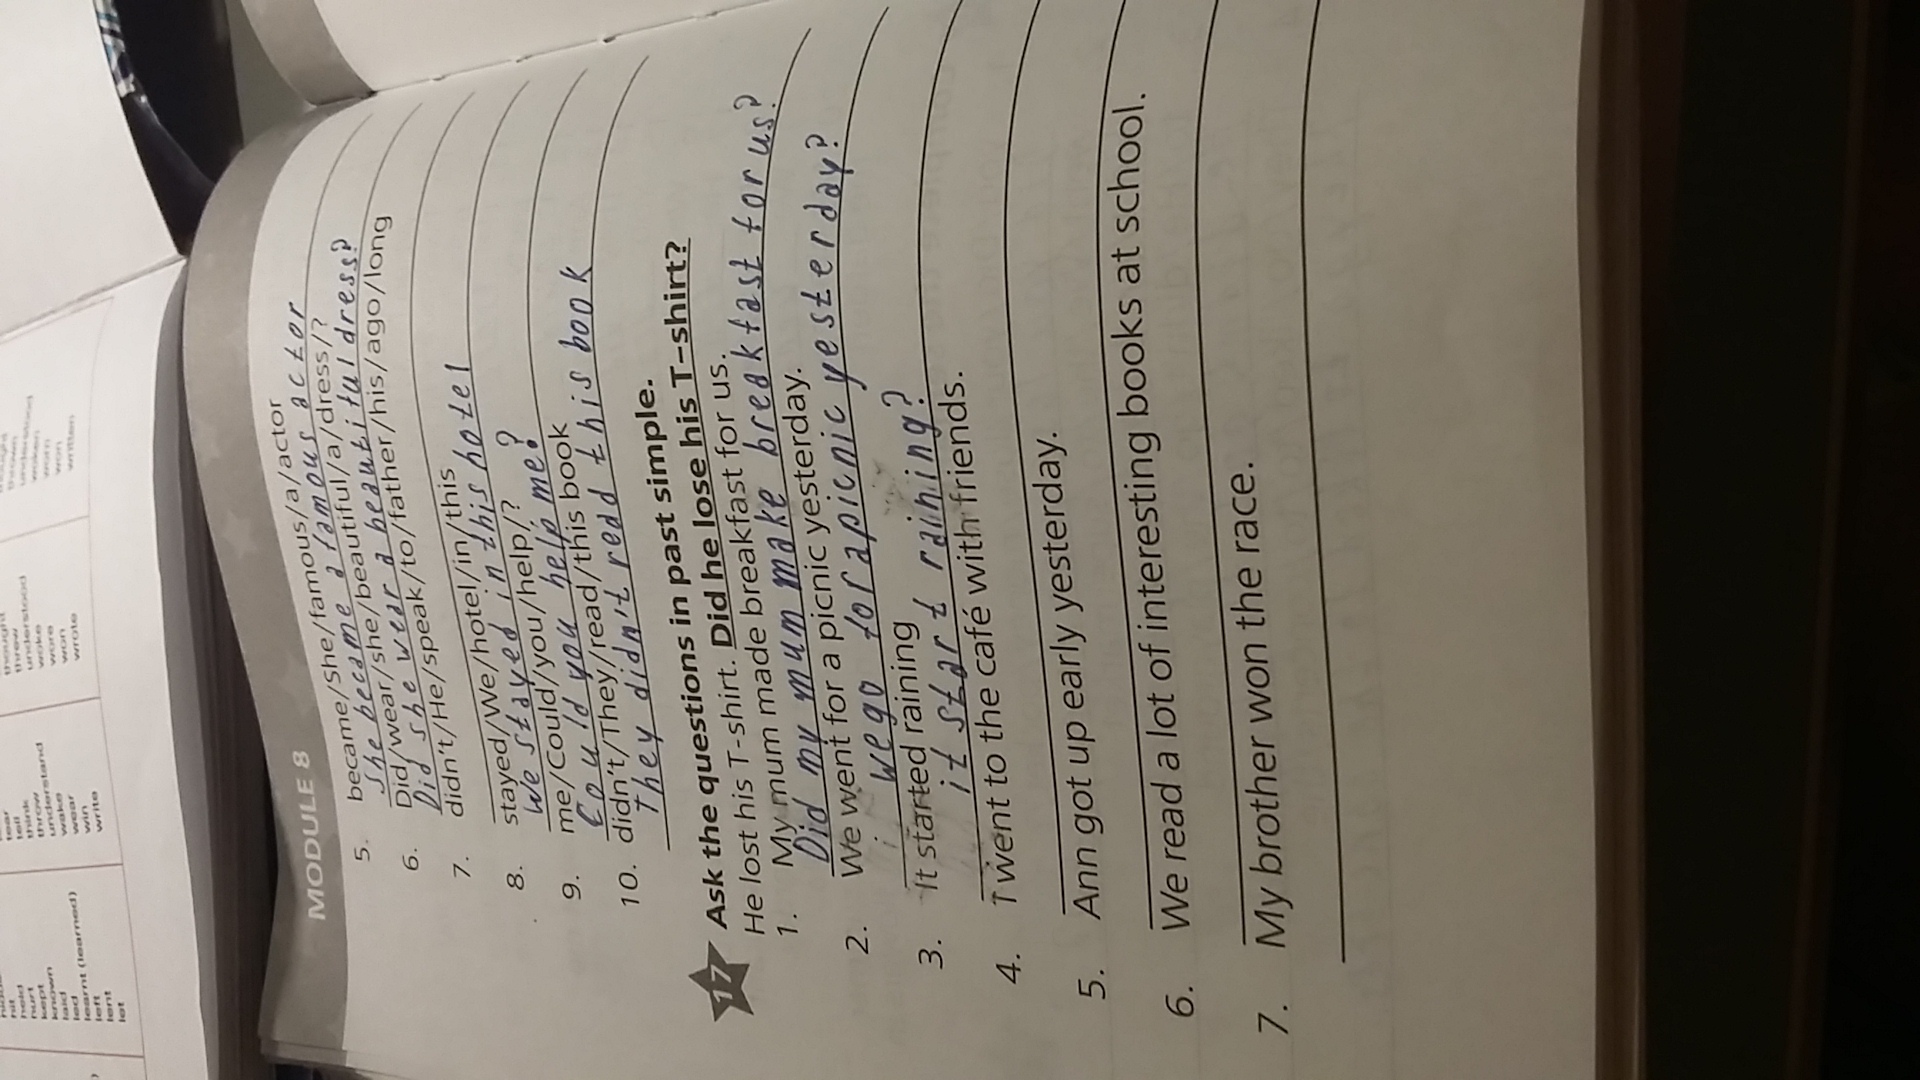 tear
tell
think
throw
understand
wake
wear
win
write
thought
threw
understood
woke
wore
won
wrote
thrown
understood
woken
worn
won
written
hit
held
hurt
kept
known
laid
led
learnt (learned)
left
lent
let
MODULE 8
5. became/She/famous/a/actor
she became a famous actor
6. Did/wear/she/beautiful/a/dress/?
Did she wear a beautiful dress?
7. didn't/He/speak/to/father/his/ago/long
8. stayed/We/hotel/in/this
We stayed in this hotel
9. me/Could/you/help/?
Could you help me?
10. didn't/They/read/this book
They didn't read this book
17 Ask the questions in past simple.
He lost his T-shirt. Did he lose his T-shirt?
1. My mum made breakfast for us.
Did my mum make breakfast for us?
2. We went for a picnic yesterday.
we go for a picnic yesterday?
3. It started raining
it start raining?
4. I went to the café with friends.
5. Ann got up early yesterday.
6. We read a lot of interesting books at school.
7. My brother won the race.